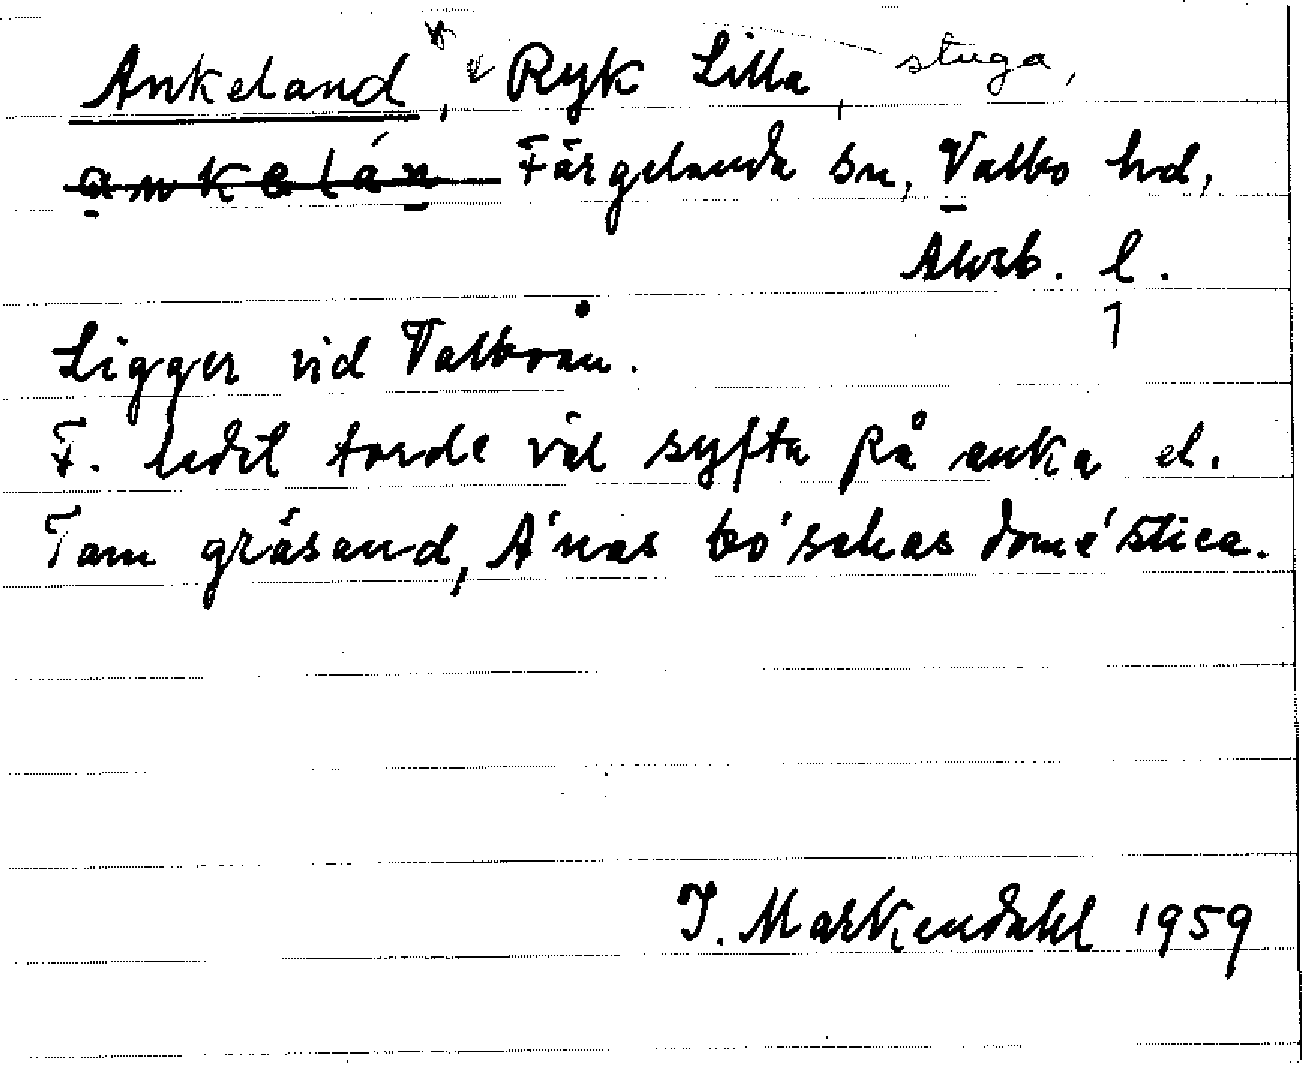 Ankeland, Ryk Lilla, stuga,
ankelán Färgelanda sn, Valbo hd,
Älvsb. l.
1
Ligger vid Valboån.
F. ledel torde väl syfta på anka el.
Tam gräsand, Ánas bóschas doméstica.
J. Markendahl 1959